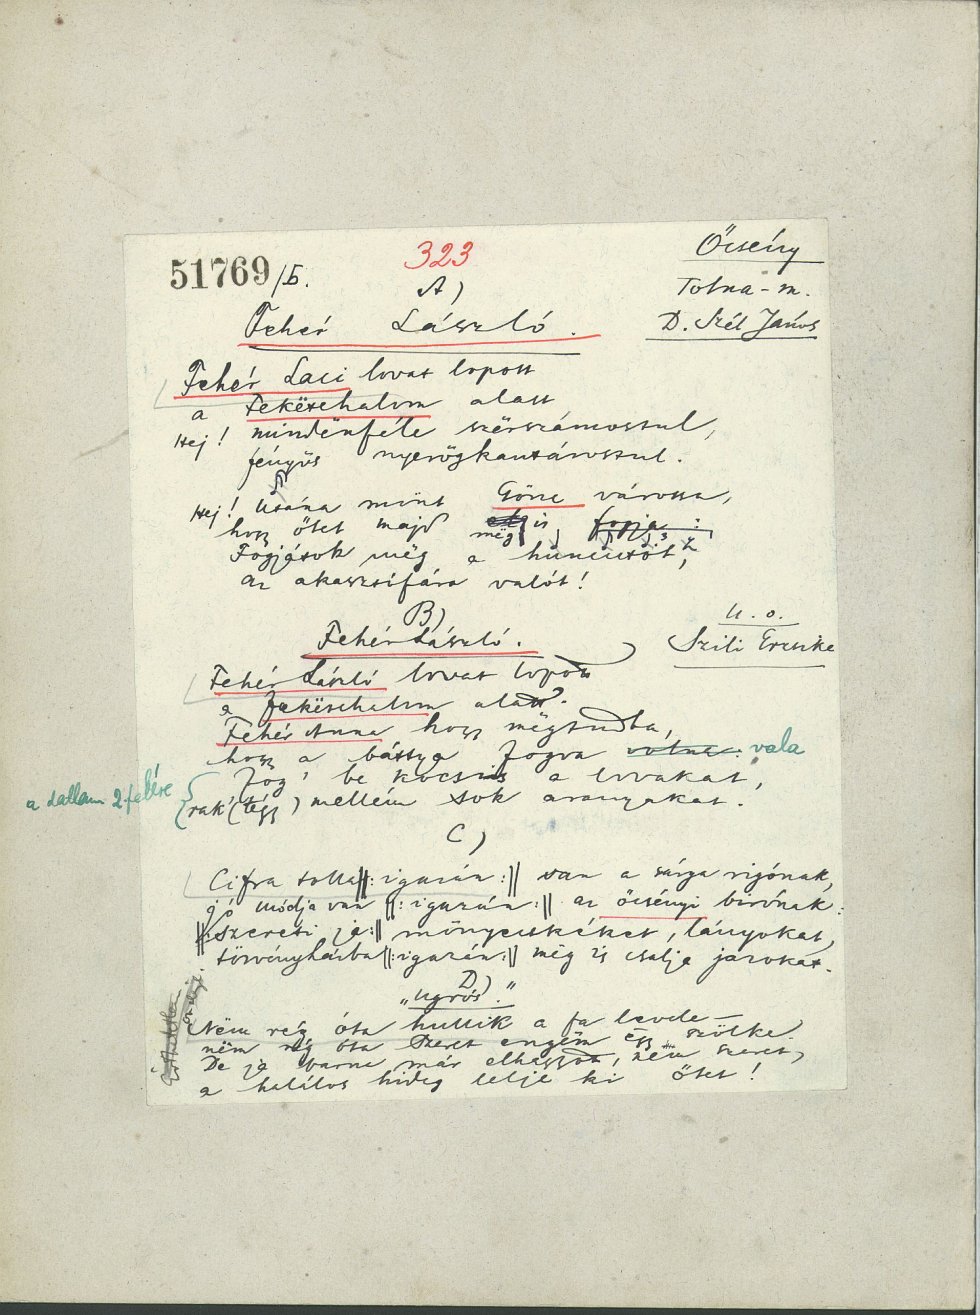 51769/b.
323
Őcsény
A)
Tolna-m.
Fehér László.
D. Szél János
Fehér Laci lovat lopott
a Feketehalom alatt
Hej! mindënféle szërszámostul,
fényös nyerögkantárostul.
Hej! Utána mönt Gönc várossa,
hogy őtet majd mëg is fogja:
Fogjátok mëg a huncutot,
az akasztófára valót!
B)
u. o.
Fehér László.
Szili Erzsike
Fehér László lovat lopott
a feketehalom alatt.
Fehér Anna hogy mëgtudta,
hogy a báttya fogva volna: vala
Fog' be kocsis a lovakat,
a dallam 2. felére
rak' (tégy) mellém sok aranyakat.
C)
Cifra tolla ||: igazán :|| van a sárga rigónak,
jó módja van ||: igazán :|| az őcsényi birónak:
||: Szereti ja :|| mönyecskéket, lányokat,
törvényházba ||: igazán :|| mëg is csalja jazokat.
D)
"Ugrós."
Nëm rég óta hullik a fa levele—
nëm rég óta szeret engëm ëgy szőke.
De ja barna már elhagyott, nëm szeret,
a halálos hideg lelje ki őtet!